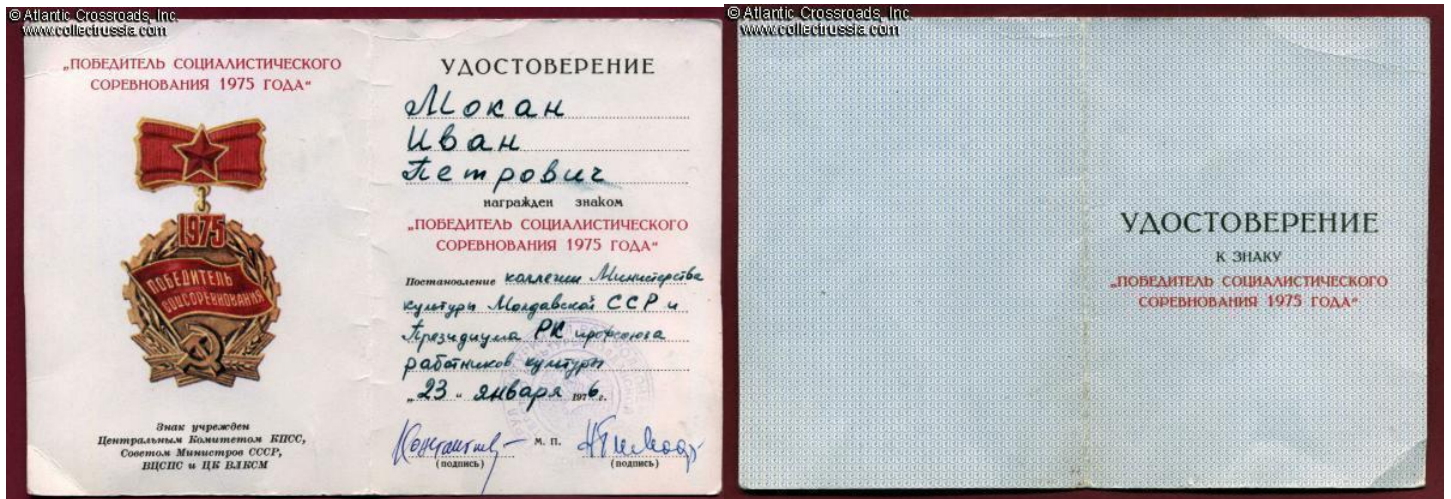 © Atlantic Crossroads, Inc.
www.collectrussia.com
„ПОБЕДИТЕЛЬ СОЦИАЛИСТИЧЕСКОГО
СОРЕВНОВАНИЯ 1975 ГОДА“
1975
ПОБЕДИТЕЛЬ
СОЦСОРЕВНОВАНИЯ
Знак учрежден
Центральным Комитетом КПСС,
Советом Министров СССР,
ВЦСПС и ЦК ВЛКСМ
УДОСТОВЕРЕНИЕ
Мокан
Иван
Петрович
награжден знаком
„ПОБЕДИТЕЛЬ СОЦИАЛИСТИЧЕСКОГО
СОРЕВНОВАНИЯ 1975 ГОДА“
Постановление коллегии Министерства
культуры Молдавской ССР и
Президиума РК профсоюза
работников культуры
„23“ января 1976 г.
М. П.
(подпись) (подпись)
© Atlantic Crossroads, Inc.
www.collectrussia.com
УДОСТОВЕРЕНИЕ
К ЗНАКУ
„ПОБЕДИТЕЛЬ СОЦИАЛИСТИЧЕСКОГО
СОРЕВНОВАНИЯ 1975 ГОДА“